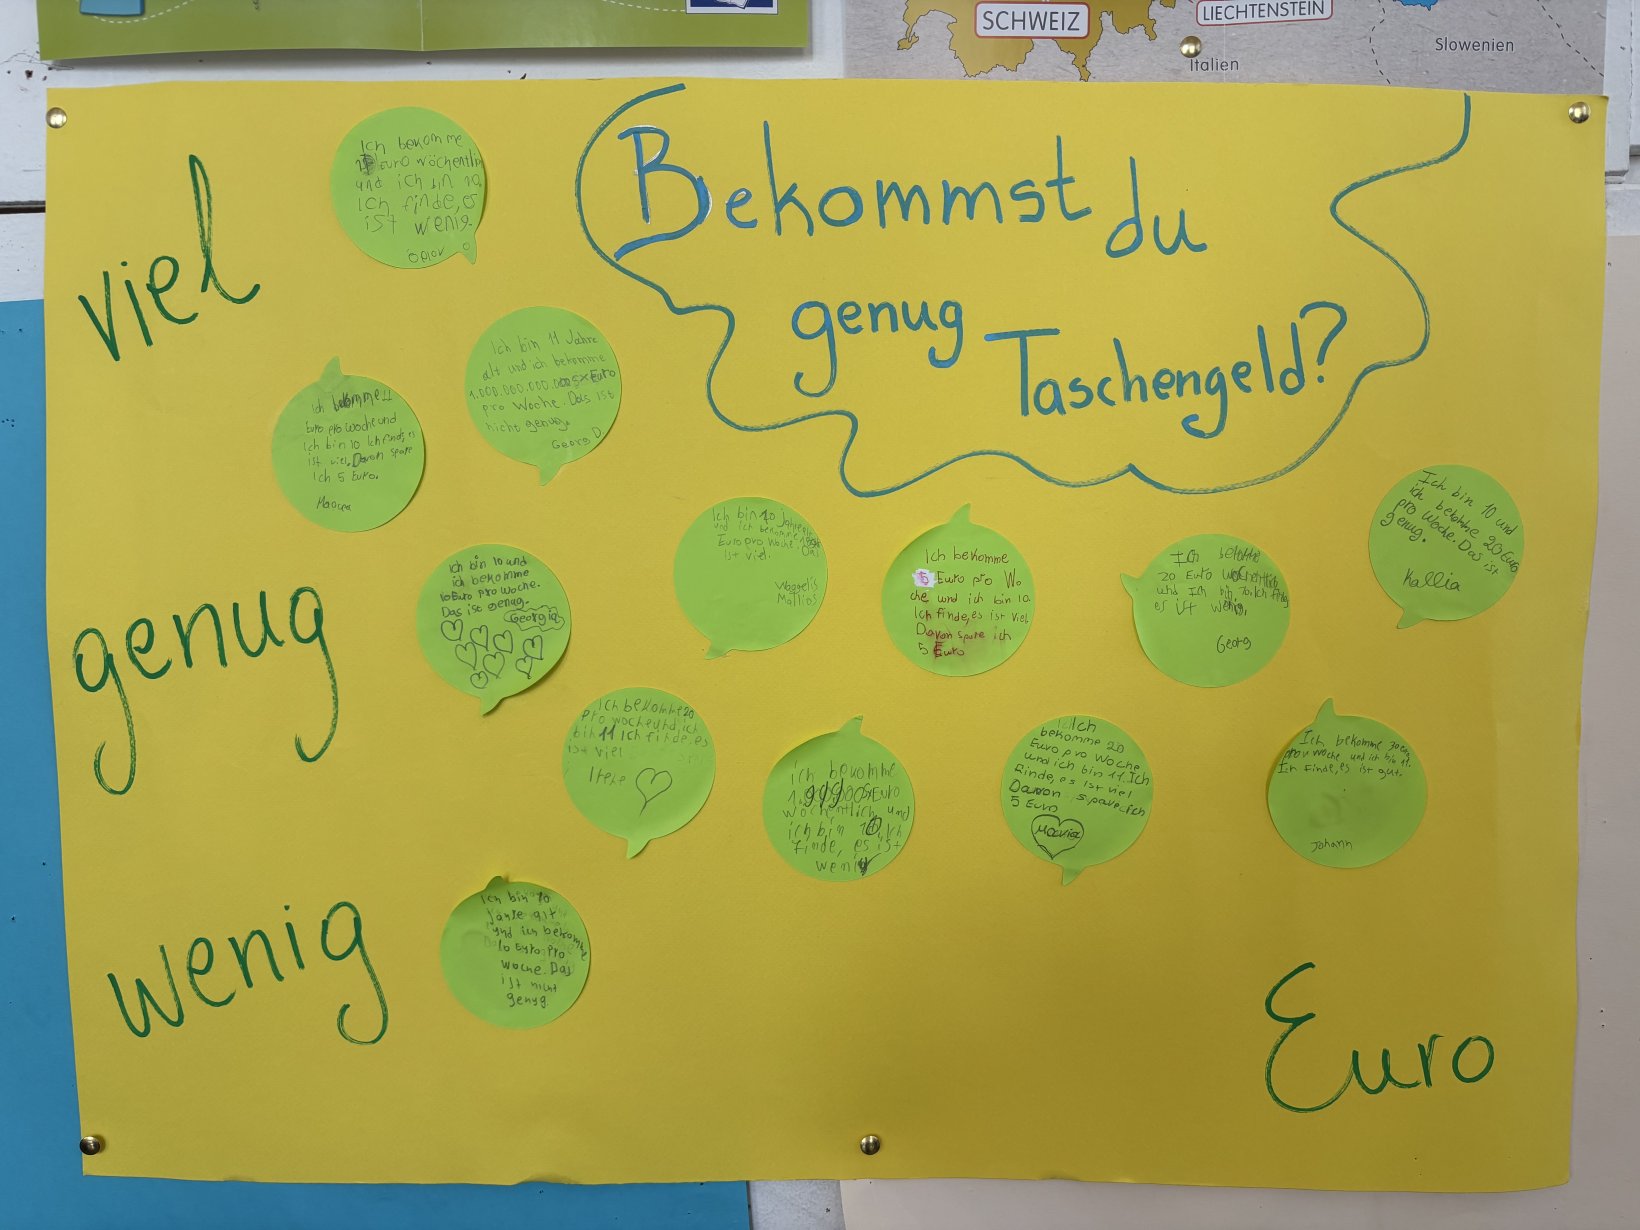 SCHWEIZ
LIECHTENSTEIN
Slowenien
Italien
Bekommst du
genug
Taschengeld?
viel
genug
wenig
Euro
Ich bekomme
Euro wöchentlich
und ich bin 10.
Ich finde, es
ist wenig.
Ich bin 11 Jahre
alt und ich bekomme
pro Woche. Das ist
nicht genug.
Georg D.
ich bekomme 11
Euro pro Woche und
ich bin 10 Ich finde, es
ist viel. Davon spare
Ich 5 Euro.
Ich bin 10 Jahre alt
und ich bekomme
Euro pro Woche.
ist viel.
Vaggelis
Mallios
Ich bekomme
5 Euro pro Wo
che und ich bin 10.
Ich finde, es ist viel
Davon spare ich
5 Euro
Ich
20 Euro wöchentlich
und Ich bin 10. Ich
es ist wenig.
Georg
Ich bin 10 und
ich bekomme 20 Euro
pro Woche. Das ist
genug.
Kallia
ich bin 10 und
ich bekomme
10 Euro pro Woche.
Das ist genug.
Georgia
Ich bekomme 20
pro woche und ich
bin 11 Ich finde, es
ist viel
Irene
ich bekomme
Euro
wöchentlich und
ich bin 10. Ich
finde, es ist
wenig
Ich
bekomme 20
Euro pro Woche
und ich bin 11. Ich
finde, es ist viel
Davon spare ich
5 Euro
Maria
Ich bekomme
pro Woche und ich bin 11.
Ich finde, es ist gut.
Johann
Ich bin 10
Jahre alt
und ich bekomme
10 Euro pro
Woche. Das
ist nicht
genug.